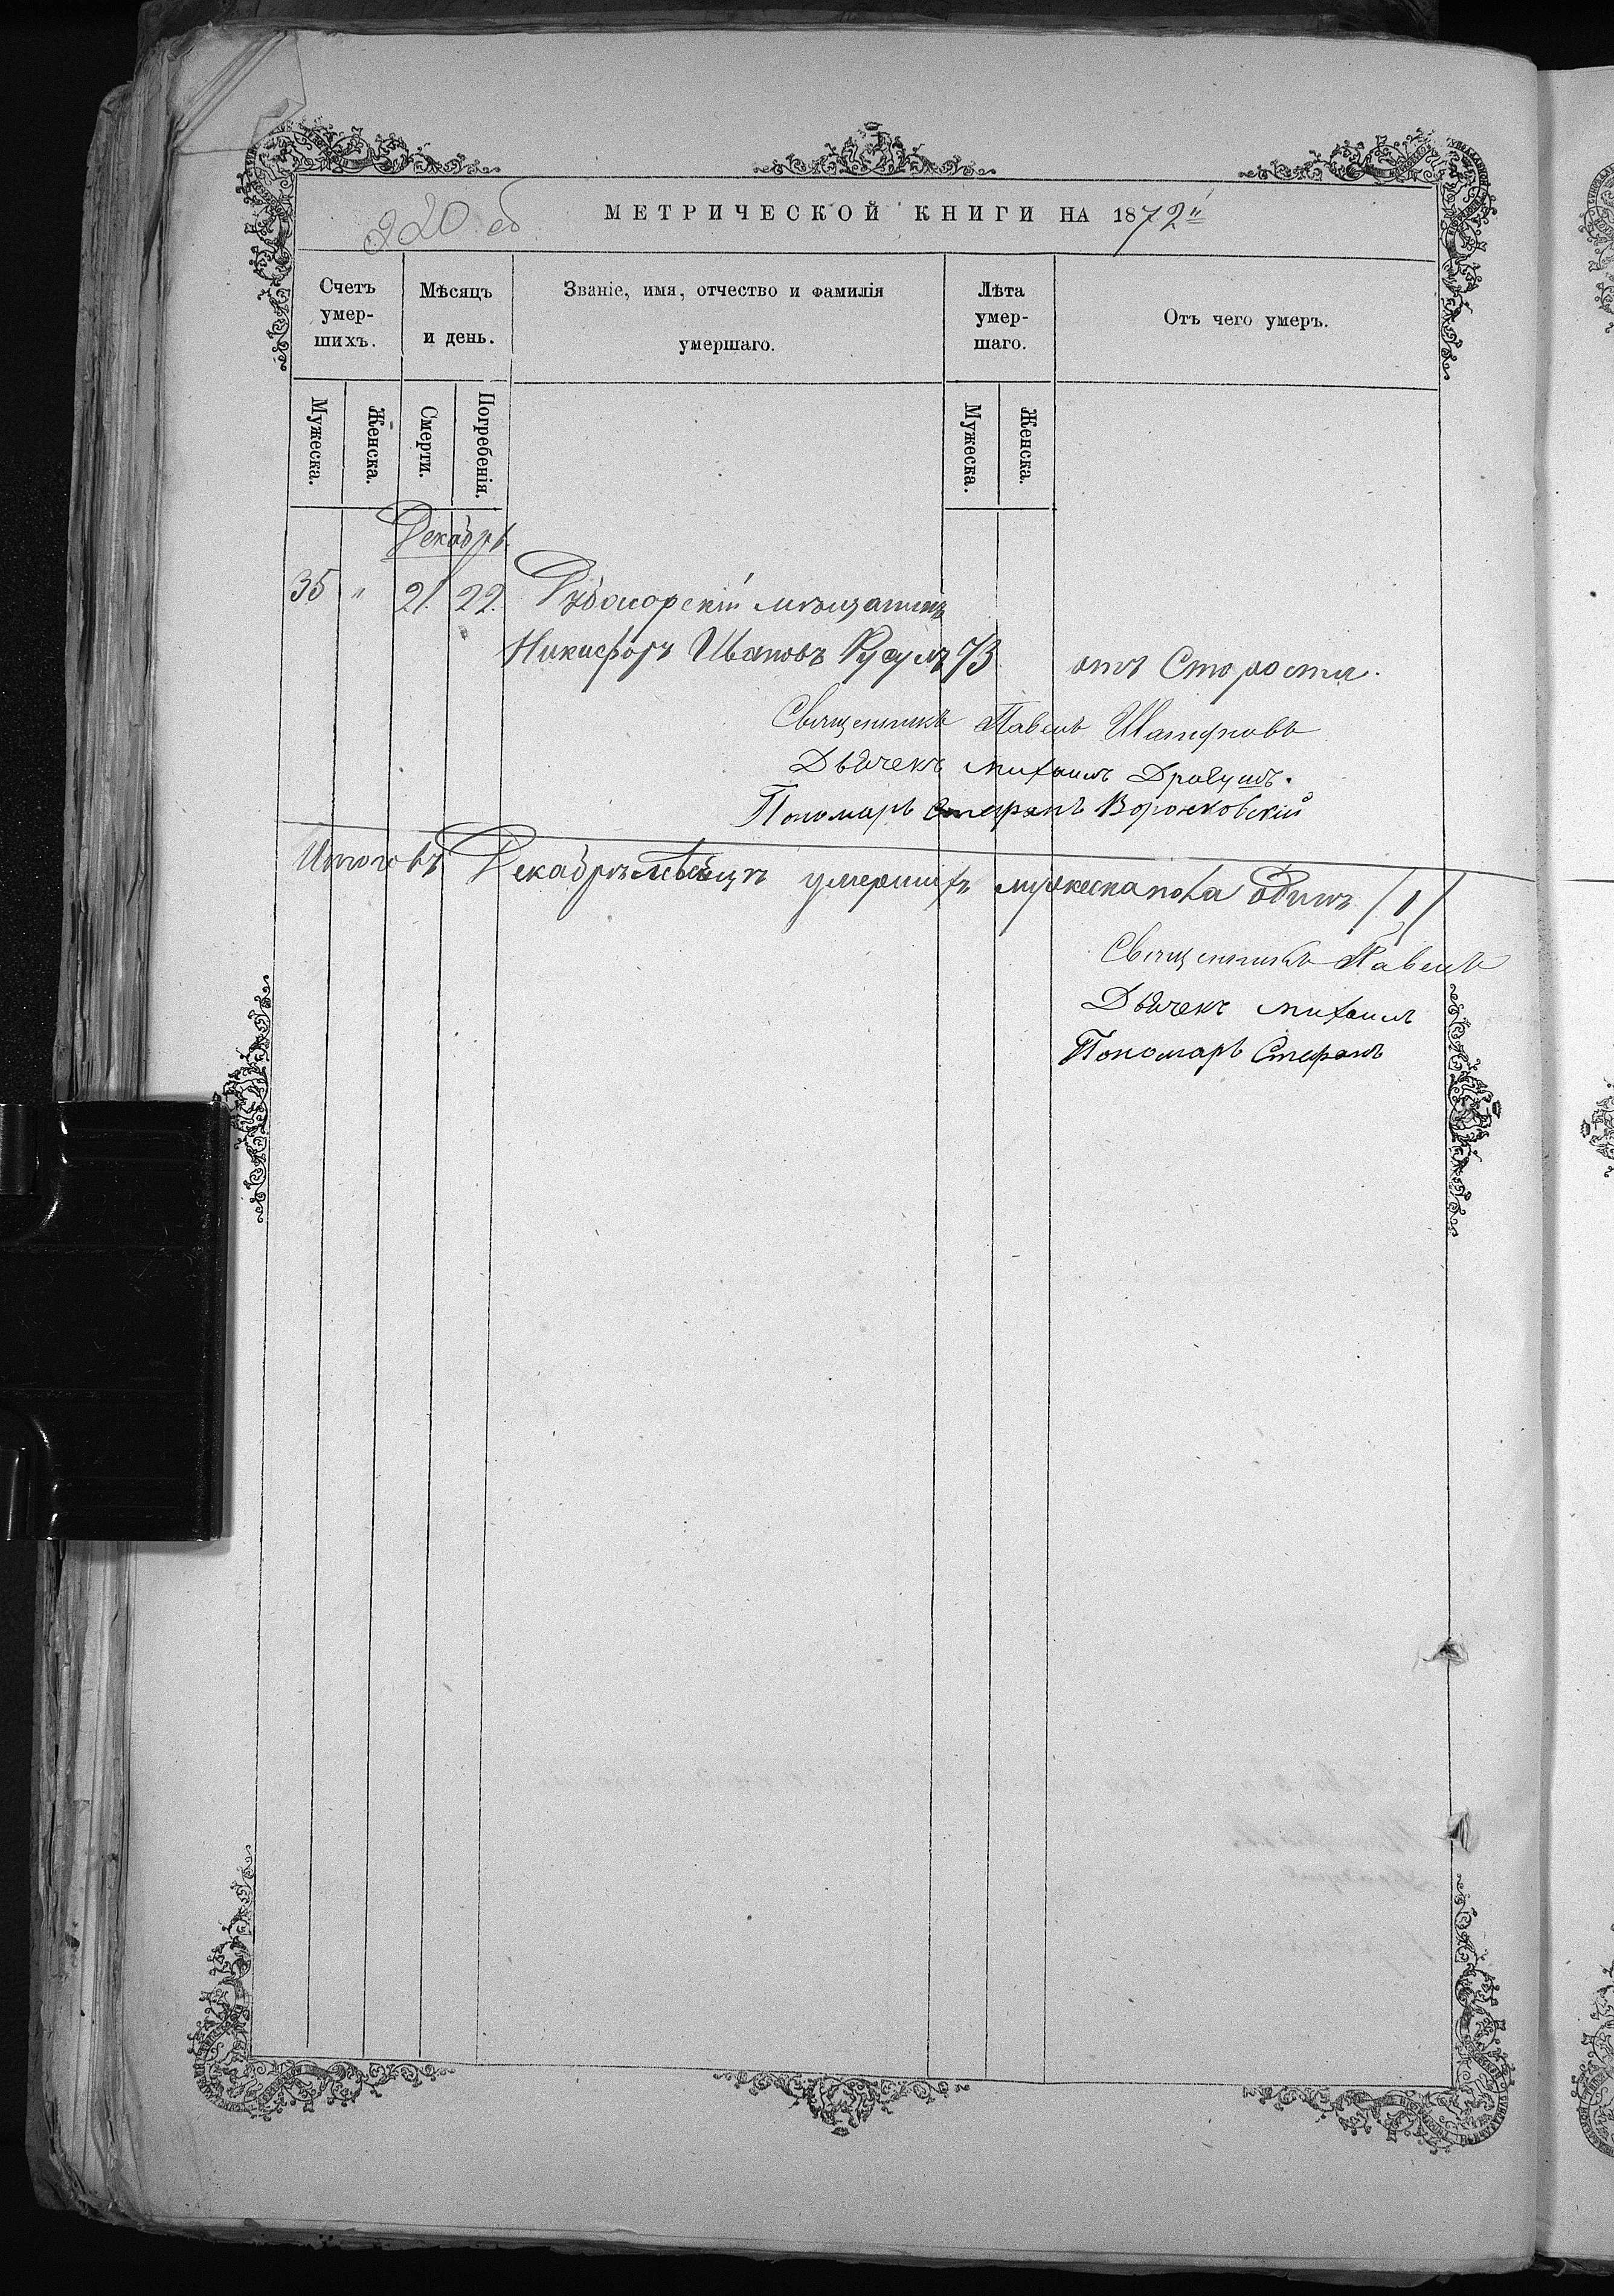 220 об
МЕТРИЧЕСКОЙ КНИГИ НА 1872й
Счетъ умер-шихъ.
Мѣсяцъ и день.
Званіе, имя, отчество и фамилія умершаго.
Лѣта умер-шаго.
Отъ чего умеръ.
Мужеска.
Женска.
Смерти.
Погребенія.
Мужеска.
Женска.
Декабрь
35 " 21. 22. Дубосарскій мѣщанинъ
Никифоръ Ивановъ 73 отъ Старости.
Священникъ Павелъ
Дьячекъ Михаилъ
Пономарь Стефанъ Воронковскій
Итого въ Декабрѣ мѣсяцѣ умершихъ мужеска пола одинъ /1/
Священникъ Павелъ
Дьячекъ Михаилъ
Пономарь Стефанъ